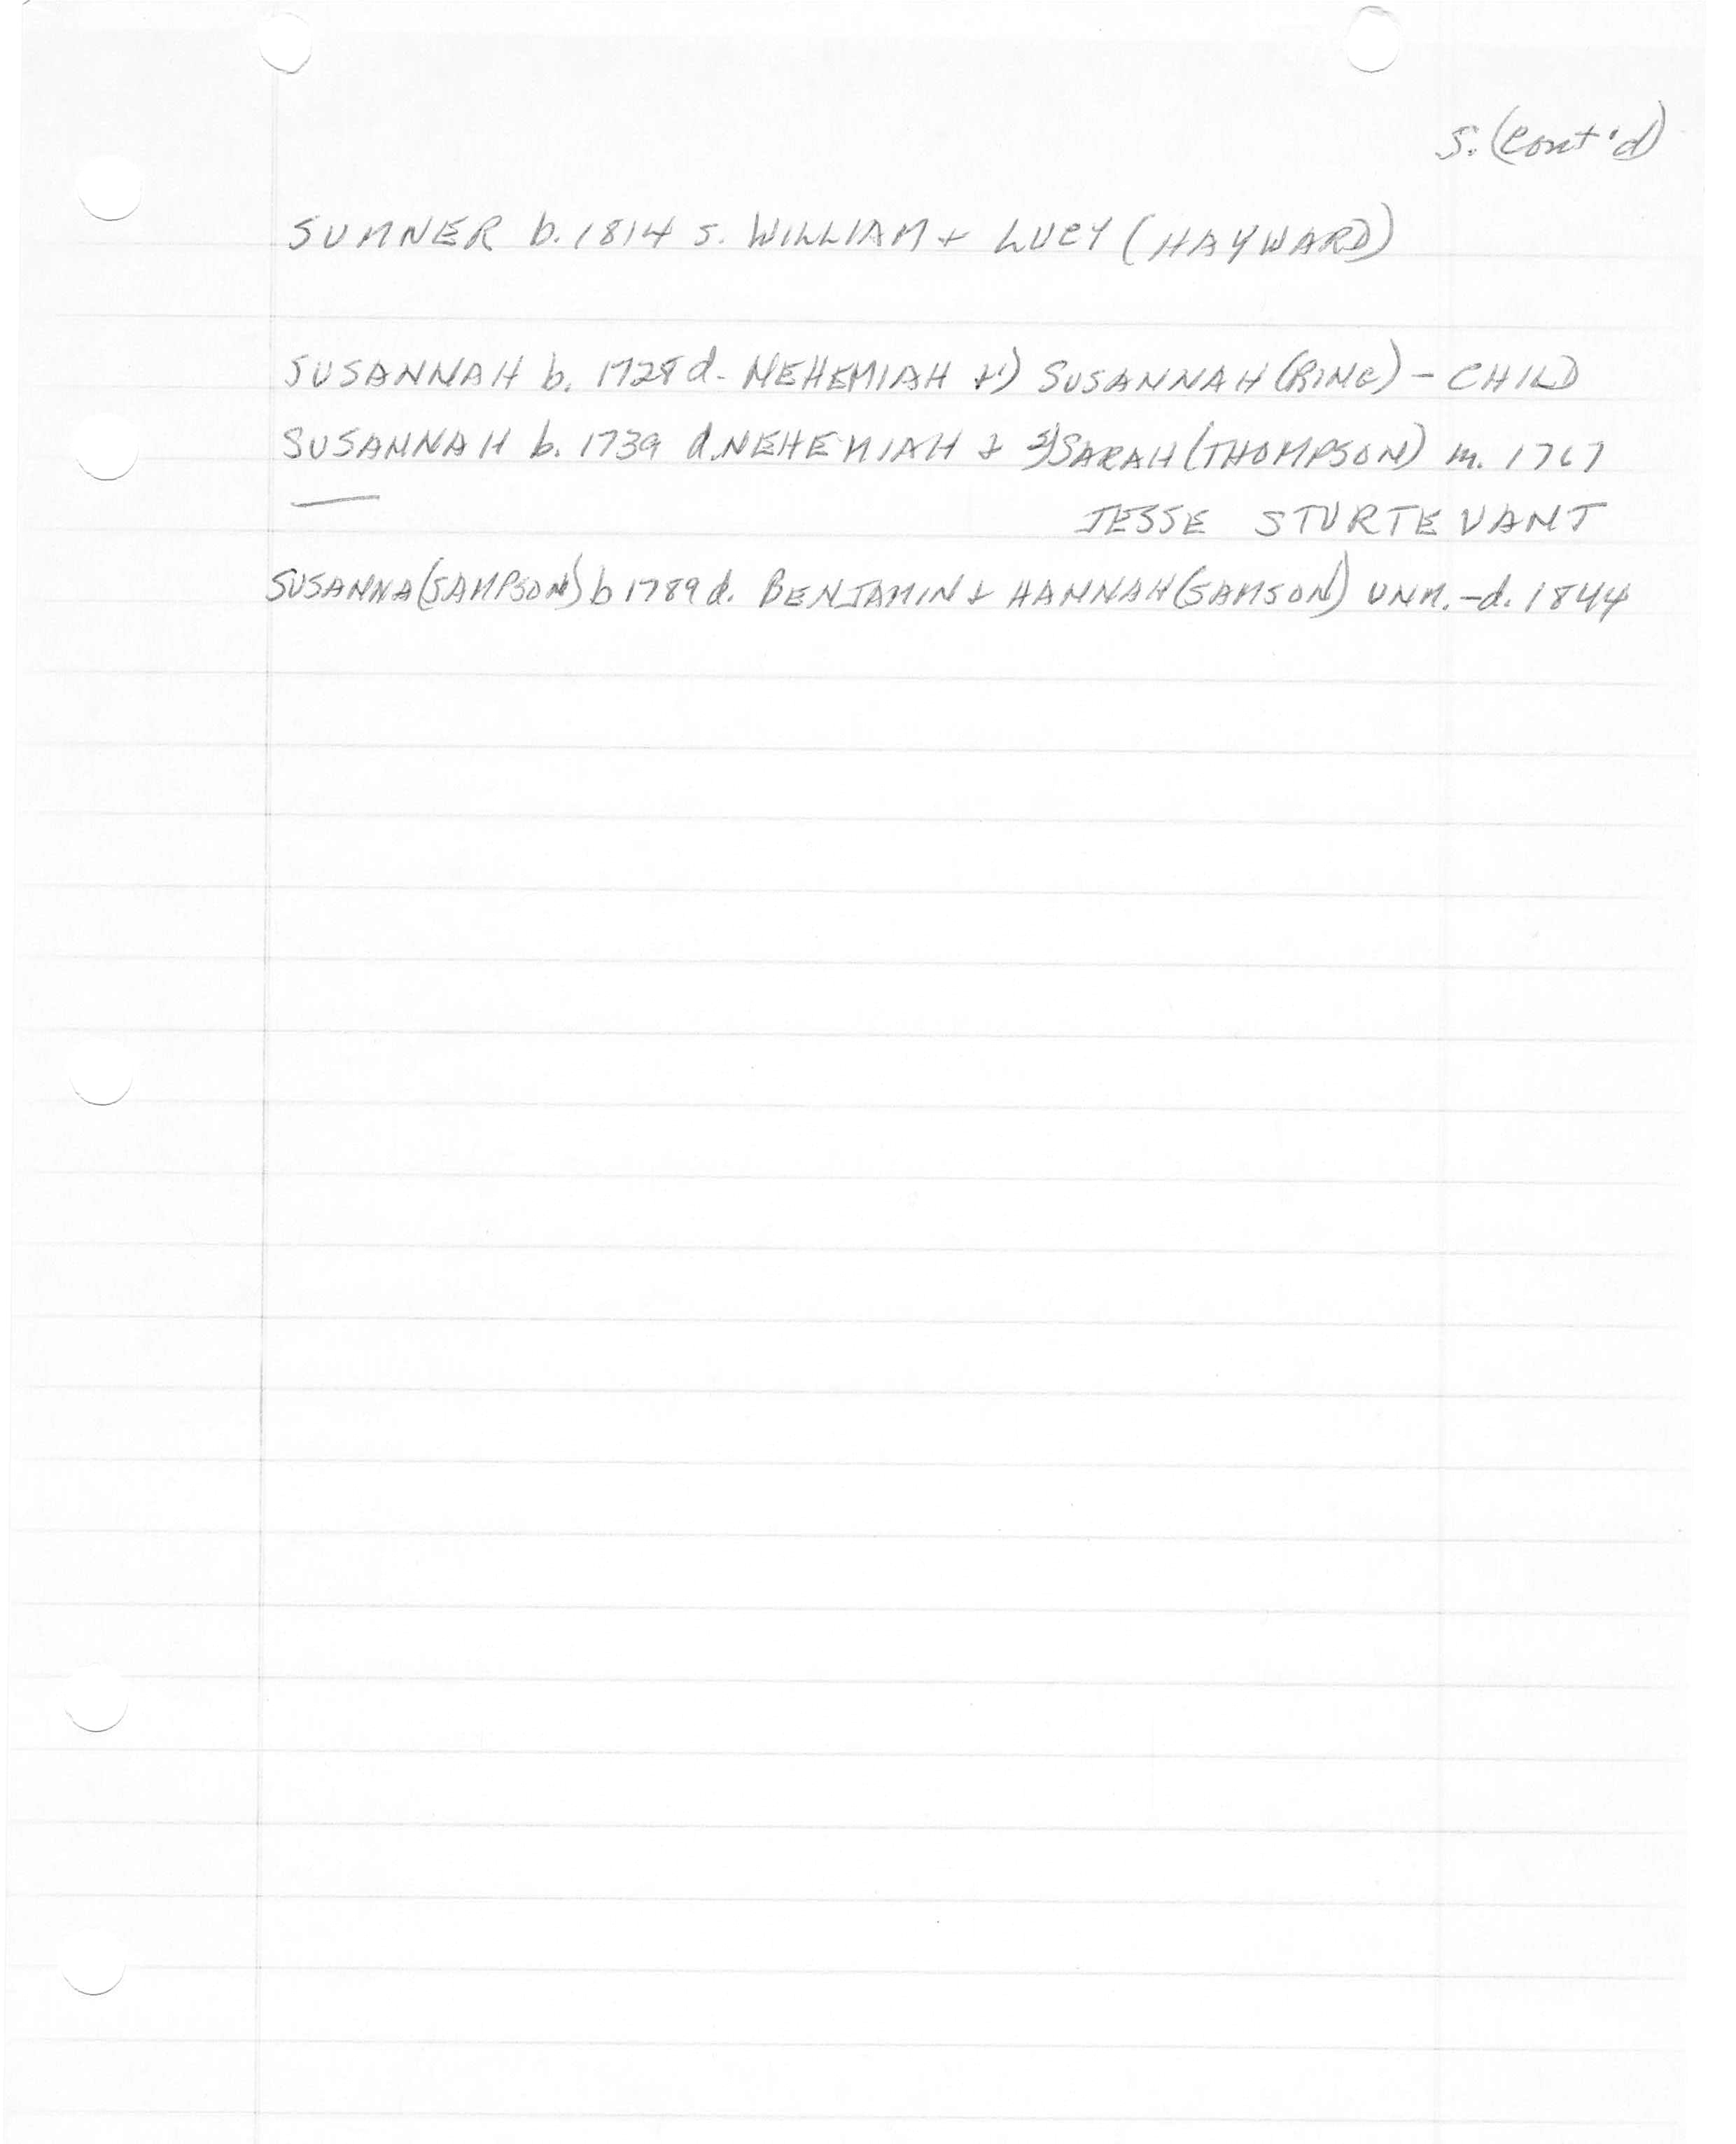 S. (Cont'd)
SUMNER b. 1814 s. WILLIAM + LUCY (HAYWARD)
SUSANNAH b. 1728 d. NEHEMIAH + 1) SUSANNAH (RING) - CHILD
SUSANNAH b. 1739 d. NEHEMIAH + 2) SARAH (THOMPSON) m. 1767
JESSE STURTEVANT
SUSANNA (SAMPSON) b 1789 d. BENJAMIN + HANNAH (SAMSON) UNM. - d. 1844